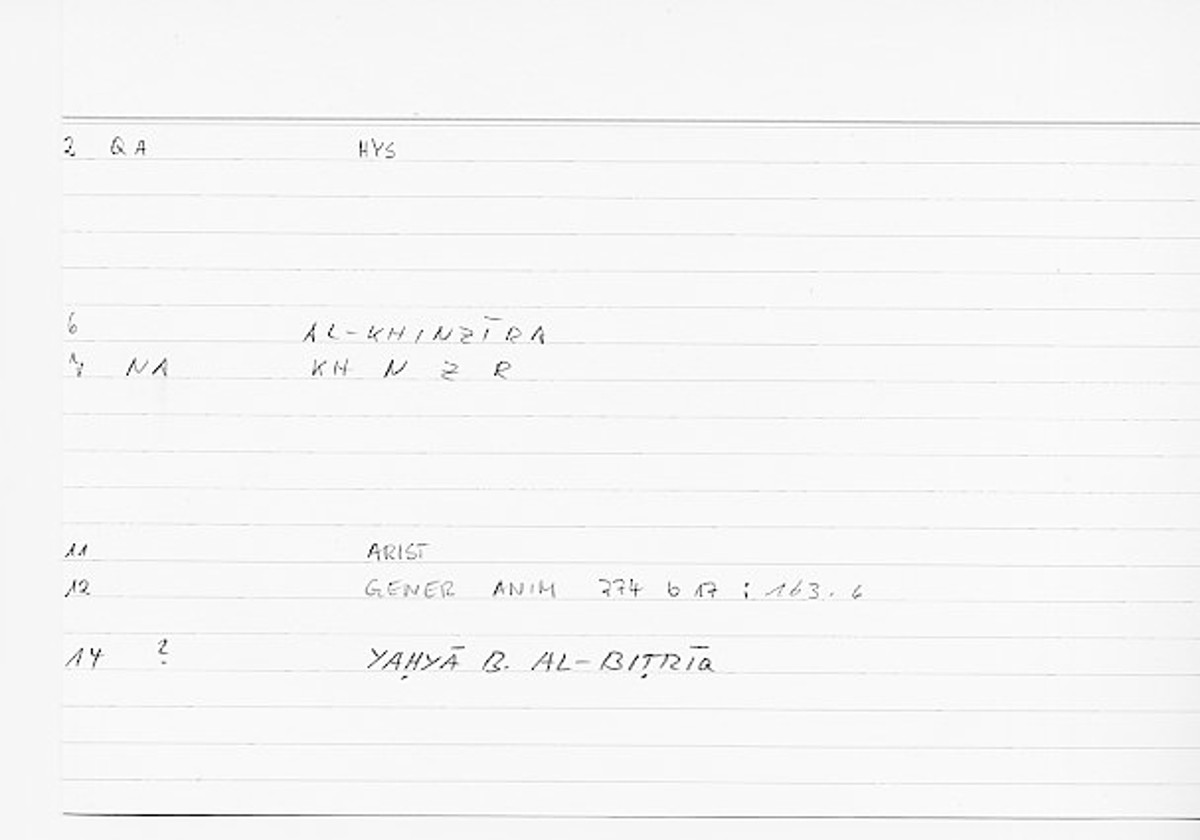 2 QA HYS
6 AL-KHINZĪRA
NA KH N Z R
11 ARIST
12 GENER ANIM 774 b 17 : 163.6
14 ? YAḤYĀ B. AL-BIṬRĪQ